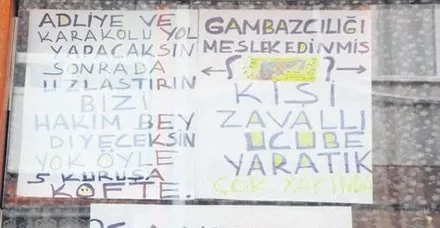 ADLİYE VE
KARAKOLU YOL
YAPACAKSIN
SONRADA
UZLAŞTIRIN
BİZİ
HAKİM BEY
DİYECEKSİN
YOK ÖYLE
5 KURUŞA
KÖFTE.
GAMBAZCILIĞI
MESLEK EDİNMİŞ
KİŞİ
ZAVALLI
UCUBE
YARATIK
ÇOK YAKINDA